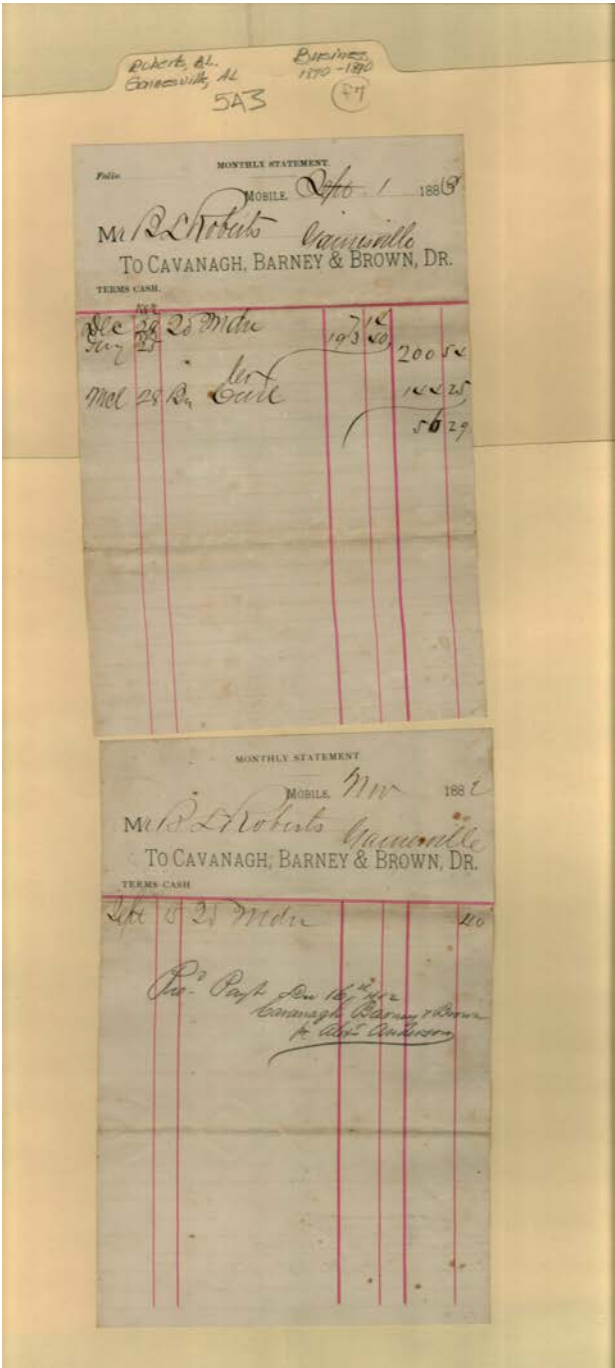 Roberts, B.L. Business
Gainesville, AL 1870-1890
5A3 F7
Folio MONTHLY STATEMENT.
MOBILE, Sept 1 188
Mr B L Roberts Gainesville
TO CAVANAGH, BARNEY & BROWN, DR.
TERMS CASH.
Dec 29 Mdse 7 14
25 193 40
200 54
Cr
Mch 28 By 144 25
56 29
MONTHLY STATEMENT
MOBILE, Nov 1882
Mr B L Roberts Gainesville
TO CAVANAGH, BARNEY & BROWN, DR.
TERMS CASH
Sept 15 Mdse 40
Rec'd Payt 16th
Cavanagh Barney & Brown
Anderson